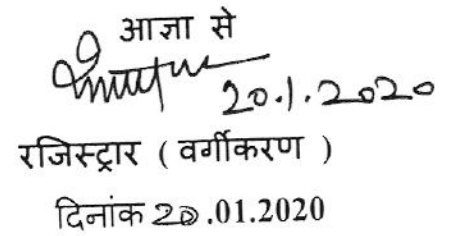 आज्ञा से
20.1.2020
रजिस्ट्रार ( वर्गीकरण )
दिनांक 20.01.2020